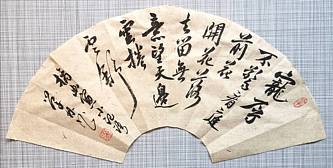 寵辱
不驚看庭
前花
開花落
去留無
意望天邊
雲捲
雲舒